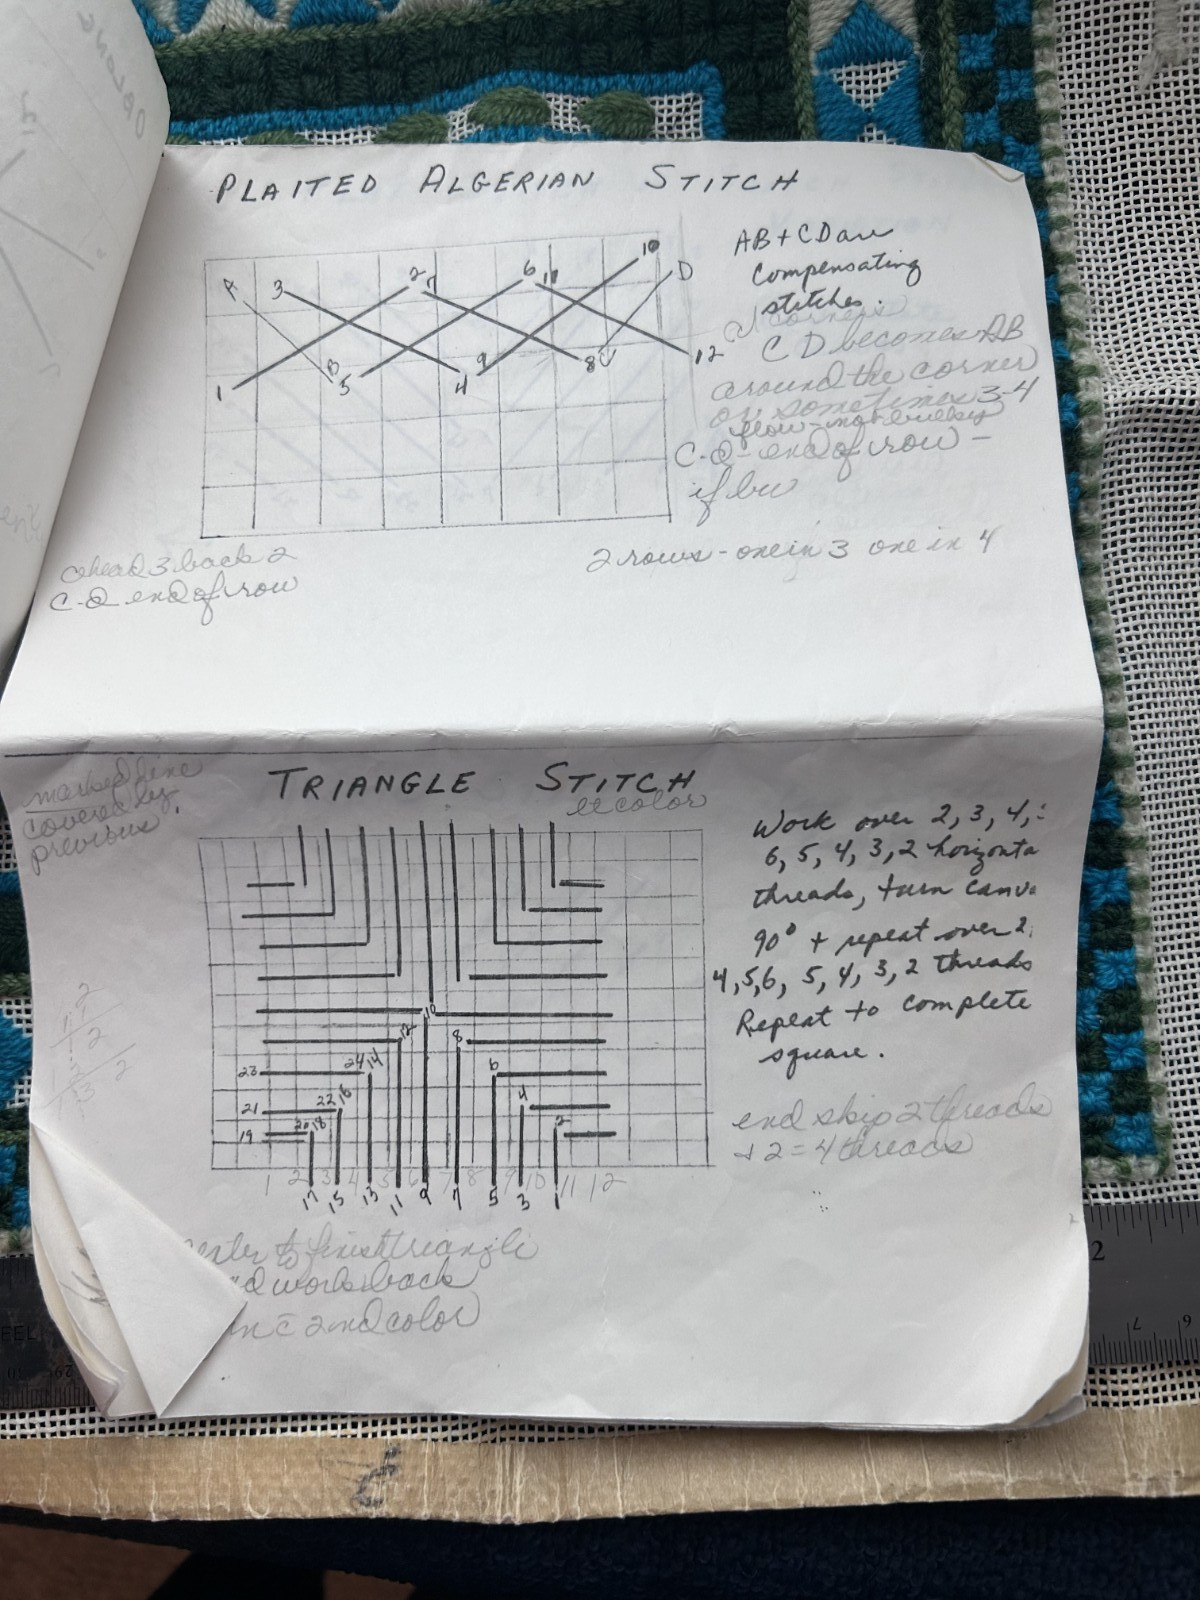 PLAITED ALGERIAN STITCH
AB + CD are
compensating
stitches.
corners
CD becomes AB
around the corner
or sometimes 3-4
flow - not bulky
C-D - end of row -
if
A 3 2 7 6 11 10 D
1 B 5 4 9 8 C 12
ahead 3 back 2
C-D end of row
2 rows - one in 3 one in 4
marked line
covered by
previous.
TRIANGLE STITCH
color
Work over 2, 3, 4,
6, 5, 4, 3, 2 horizonta
threads, turn canv
90° + repeat over 2
4, 5, 6, 5, 4, 3, 2 threads
Repeat to complete
square.
10
12 8
23 24 14 6
21 22 16 4
19 20 18 2
1 2 3 4 5 6 7 8 9 10 11 12
17 15 13 11 9 7 5 3 1
end skip 2 threads
+ 2 = 4 threads
to finish triangle
work back
2nd color
2
7 6